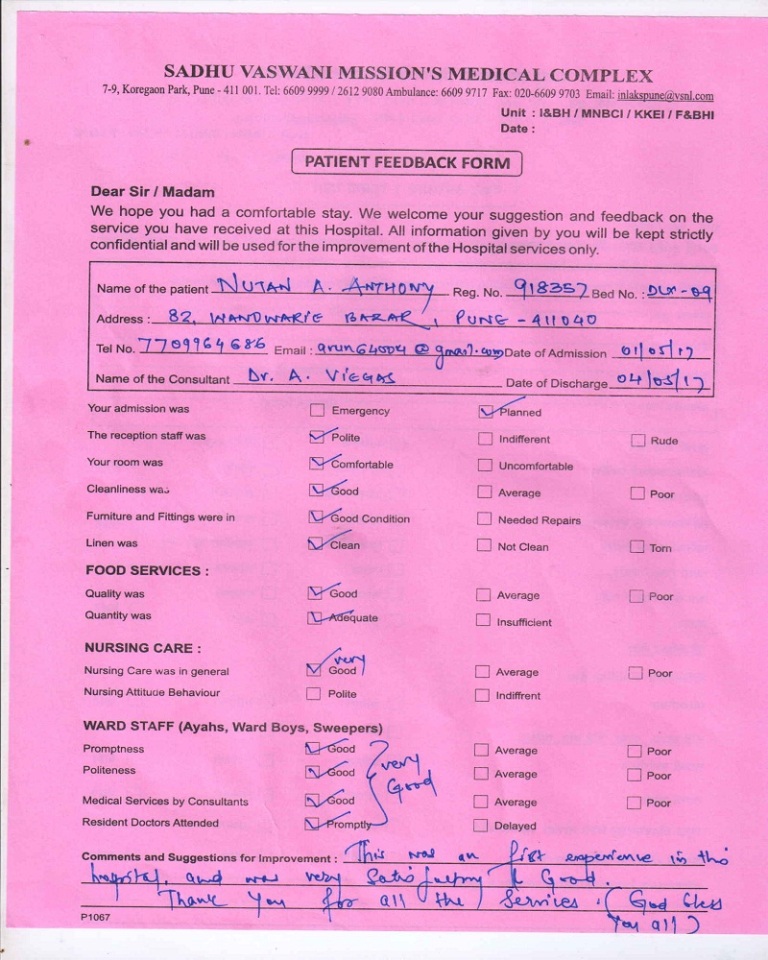 SADHU VASWANI MISSION'S MEDICAL COMPLEX
7-9, Koregaon Park, Pune - 411 001. Tel: 6609 9999 / 2612 9080 Ambulance: 6609 9717 Fax: 020-6609 9703 Email: inlakspune@vsnl.com
Unit : I&BH / MNBCI / KKEI / F&BHI
Date :
PATIENT FEEDBACK FORM
Dear Sir / Madam
We hope you had a comfortable stay. We welcome your suggestion and feedback on the
service you have received at this Hospital. All information given by you will be kept strictly
confidential and will be used for the improvement of the Hospital services only.
Name of the patient NUTAN A. ANTHONY Reg. No. 918357 Bed No. : DLX-09
Address : 82, WANOWARIE BAZAR, PUNE - 411040
Tel No. 7709964686 Email : arun64004@gmail.com Date of Admission 01/05/17
Name of the Consultant Dr. A. VIEGAS Date of Discharge 04/05/17
Your admission was Emergency Planned
The reception staff was Polite Indifferent Rude
Your room was Comfortable Uncomfortable
Cleanliness was Good Average Poor
Furniture and Fittings were in Good Condition Needed Repairs
Linen was Clean Not Clean Torn
FOOD SERVICES :
Quality was Good Average Poor
Quantity was Adequate Insufficient
NURSING CARE :
very
Nursing Care was in general Good Average Poor
Nursing Attitude Behaviour Polite Indiffrent
WARD STAFF (Ayahs, Ward Boys, Sweepers)
Promptness Good Average Poor
very
Politeness Good Average Poor
Good
Medical Services by Consultants Good Average Poor
Resident Doctors Attended Promptly Delayed
Comments and Suggestions for Improvement : This was an first experience in this
hospital, and was very Satisfactory & Good.
Thank You for all the Services. (God bless
You all)
P1067